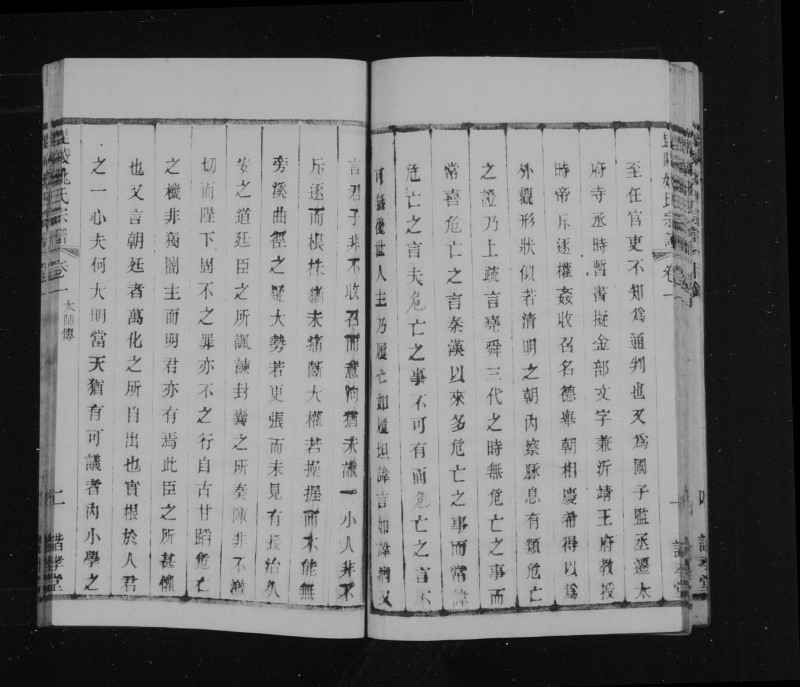 至任官吏不知爲通判也又爲國子監丞遷太
府寺丞時暫書擬金部文字兼沂靖王府教授
時帝斥逐權姦收召名德舉朝相慶希得以爲
外觀形狀似若清明之朝內察脈息有類危亡
之證乃上疏言堯舜三代之時無危亡之事而
常喜危亡之言秦漢以來多危亡之事而常諱
危亡之言夫危亡之事不可有而危亡之言不
可無後世人主乃履亡如履坦諱言如諱病又
言君子非不收召而意向猶未調一小人非不
斥逐而根株猶未痛斷大權若操握而未能無
旁溪曲徑之疑大勢若更張而未見有長治久
安之道廷臣之所諷諫封囊之所奏陳非不激
切而陛下固不之罪亦不之行自古甘蹈危亡
之機非獨闇主而明君亦有焉此臣之所甚懼
也又言朝廷者萬化之所自出也實根於人君
之一心夫何大明當天猶有可議者內小學之
毘陵姚氏宗譜 卷一 太師傳 二 諧孝堂